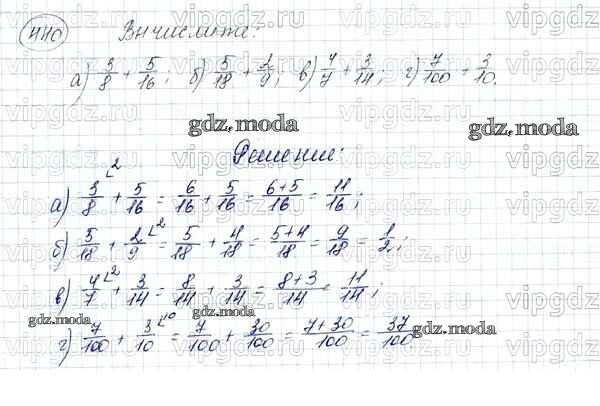 440 Вычислите:
а) 3/8 + 5/16; б) 5/18 + 2/9; в) 4/7 + 3/14; г) 7/100 + 3/10.
gdz.moda gdz.moda
Решение:
а) 3/8 ∟2 + 5/16 = 6/16 + 5/16 = 6+5/16 = 11/16;
б) 5/18 + 2/9 ∟2 = 5/18 + 4/18 = 5+4/18 = 9/18 = 1/2;
в) 4/7 ∟2 + 3/14 = 8/14 + 3/14 = 8+3/14 = 11/14;
gdz.moda gdz.moda
г) 7/100 + 3/10 ∟10 = 7/100 + 30/100 = 7+30/100 = 37/100
gdz.moda
vipgdz.ru